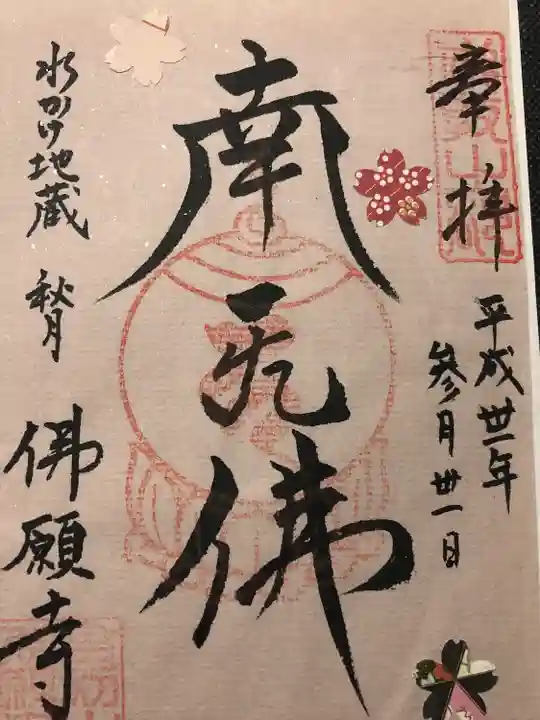 奉拝
平成卅一年
参月卅一日
南无佛
水かけ地蔵 秋月
佛願寺